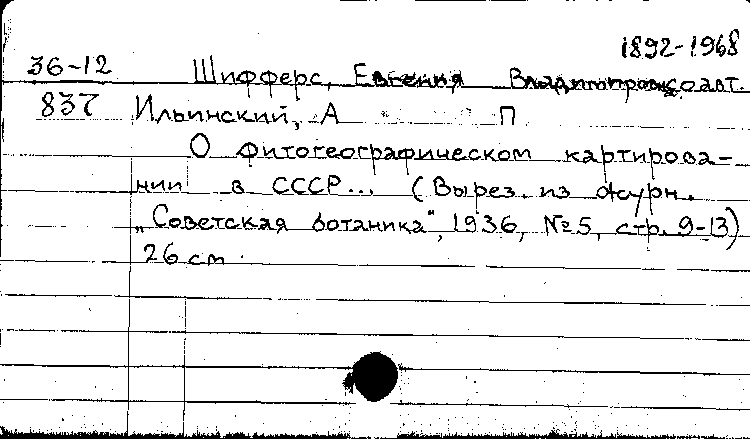 1892-1968
36-12 Шифферс, Евгения Владимировна, соавт.
837 Ильинский, А П
О фитогеографическом картирова-
нии в СССР... (Вырез. из журн.
„Советская ботаника", 1936, №5, стр. 9-13)
26 см.